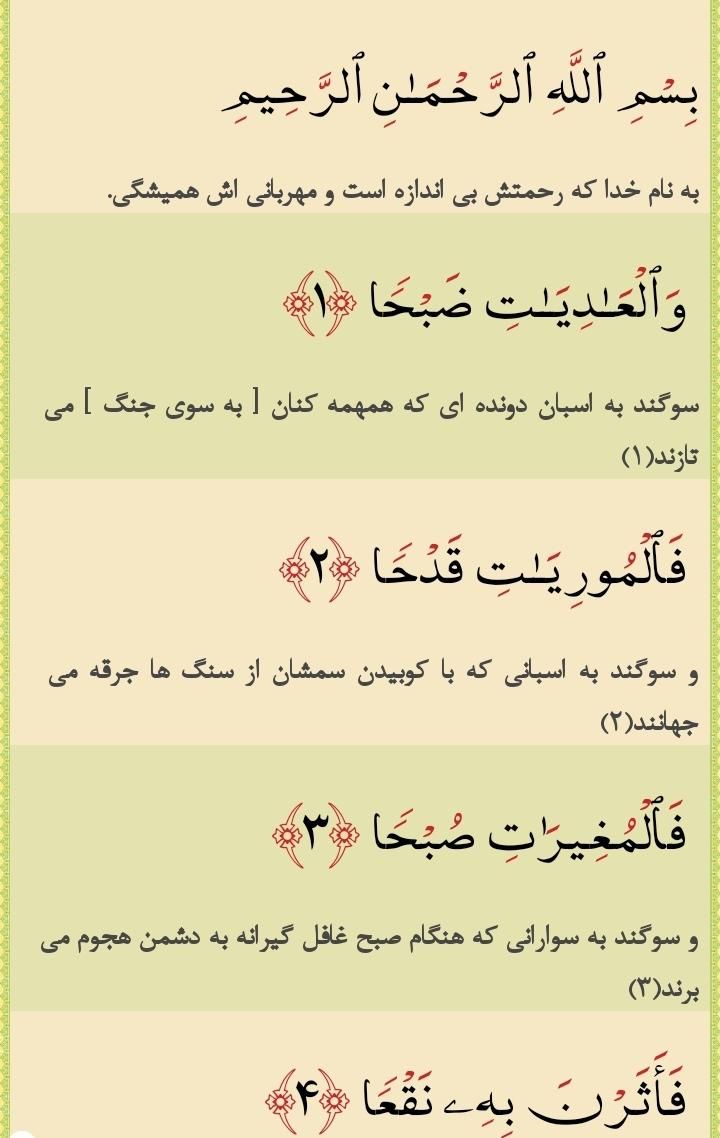 بِسْمِ ٱللَّهِ ٱلرَّحْمَـٰنِ ٱلرَّحِيمِ
به نام خدا که رحمتش بی اندازه است و مهربانی اش همیشگی.
وَٱلْعَـٰدِيَـٰتِ ضَبْحًا ﴿١﴾
سوگند به اسبان دونده ای که همهمه کنان [ به سوی جنگ ] می
تازند(۱)
فَٱلْمُورِيَـٰتِ قَدْحًا ﴿٢﴾
و سوگند به اسبانی که با کوبیدن سمشان از سنگ ها جرقه می
جهانند(۲)
فَٱلْمُغِيرَٰتِ صُبْحًا ﴿٣﴾
و سوگند به سوارانی که هنگام صبح غافل گیرانه به دشمن هجوم می
برند(۳)
فَأَثَرْنَ بِهِۦ نَقْعًا ﴿۴﴾